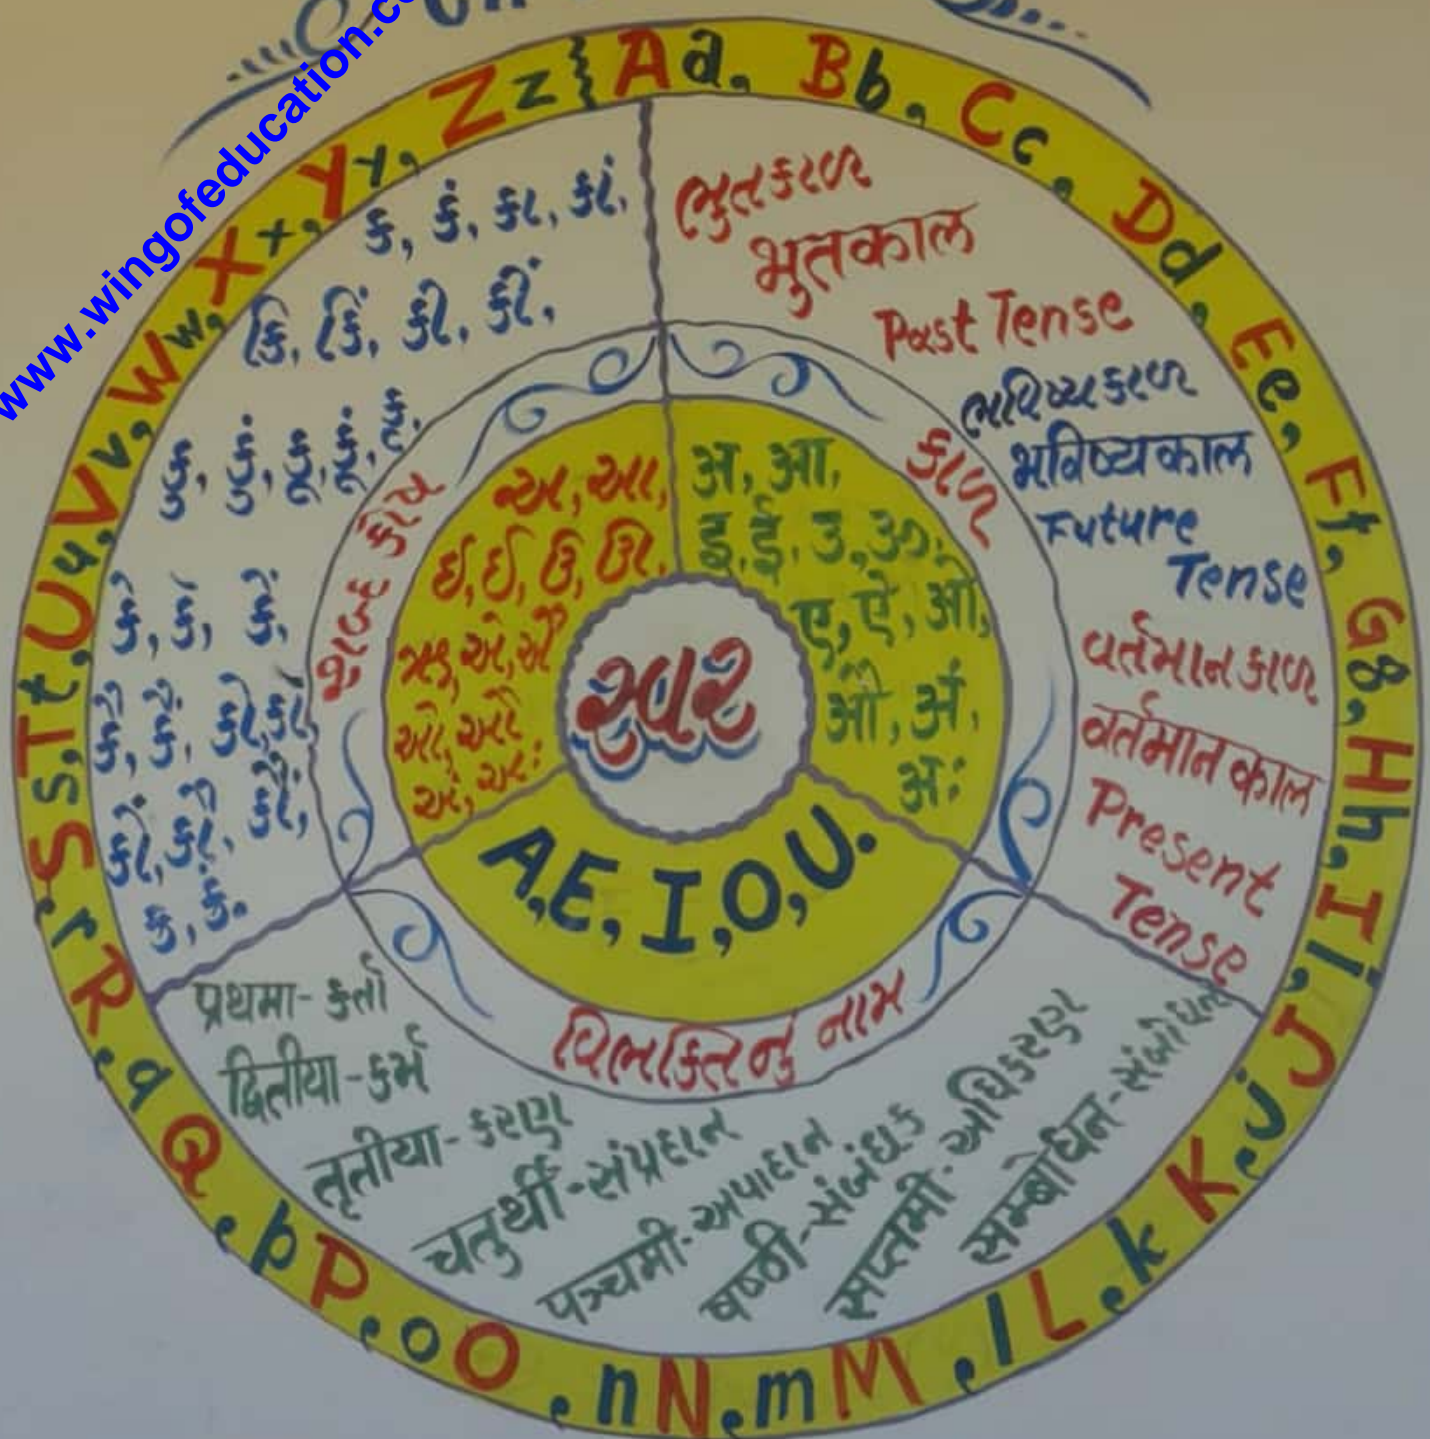 www.wingofeducation.co
Aa, Bb, Cc, Dd, Ee, Ff, Gg, Hh, Ii, Jj, Kk, Ll, Mm, Nn, Oo, Pp, Qq, Rr, Ss, Tt, Uu, Vv, Ww, Xx, Yy, Zz
ભુતકાળ
भुतकाल
Past Tense
ભવિષ્યકાળ
भविष्यकाल
Future
Tense
વર્તમાનકાળ
वर्तमानकाल
Present
Tense
કાળ
ક, કં, કા, કાં,
કિ, કિં, કી, કીં,
કુ, કું, કૂ, કૂં, કૃ,
શબ્દ કોષ
અ, આ,
ઇ, ઈ, ઉ, ઊ,
ઋ, એ, ઐ
ઓ, ઔ
અં, અઃ
अ, आ,
इ, ई, उ, ऊ,
ए, ऐ, ओ,
औ, अं,
अः
સ્વર
A, E, I, O, U.
વિભક્તિનું નામ
प्रथमा - કર્તા
द्वितीया - કર્મ
तृतीया - કરણ
चतुर्थी - સંપ્રદાન
पञ्चमी - અપાદાન
षष्ठी - સંબંધક
सप्तमी - અધિકરણ
सम्बोधन - સંબોધન